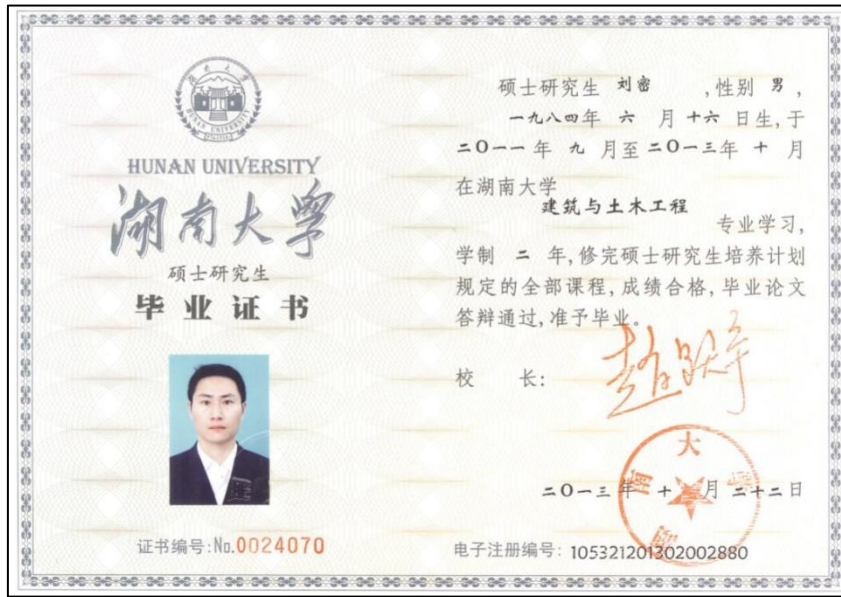 湖南大学
HUNAN UNIVERSITY
HUNAN UNIVERSITY
湖南大学
硕士研究生
毕业证书
证书编号:No.0024070
硕士研究生 刘密 ,性别 男,
一九八四年 六 月 十六 日生,于
二〇一一年 九 月至二〇一三年 十 月
在湖南大学
建筑与土木工程
专业学习,
学制 二 年,修完硕士研究生培养计划
规定的全部课程,成绩合格,毕业论文
答辩通过,准予毕业。
校 长:
二〇一三 年 十 月 二十二日
湖南大学
电子注册编号: 105321201302002880